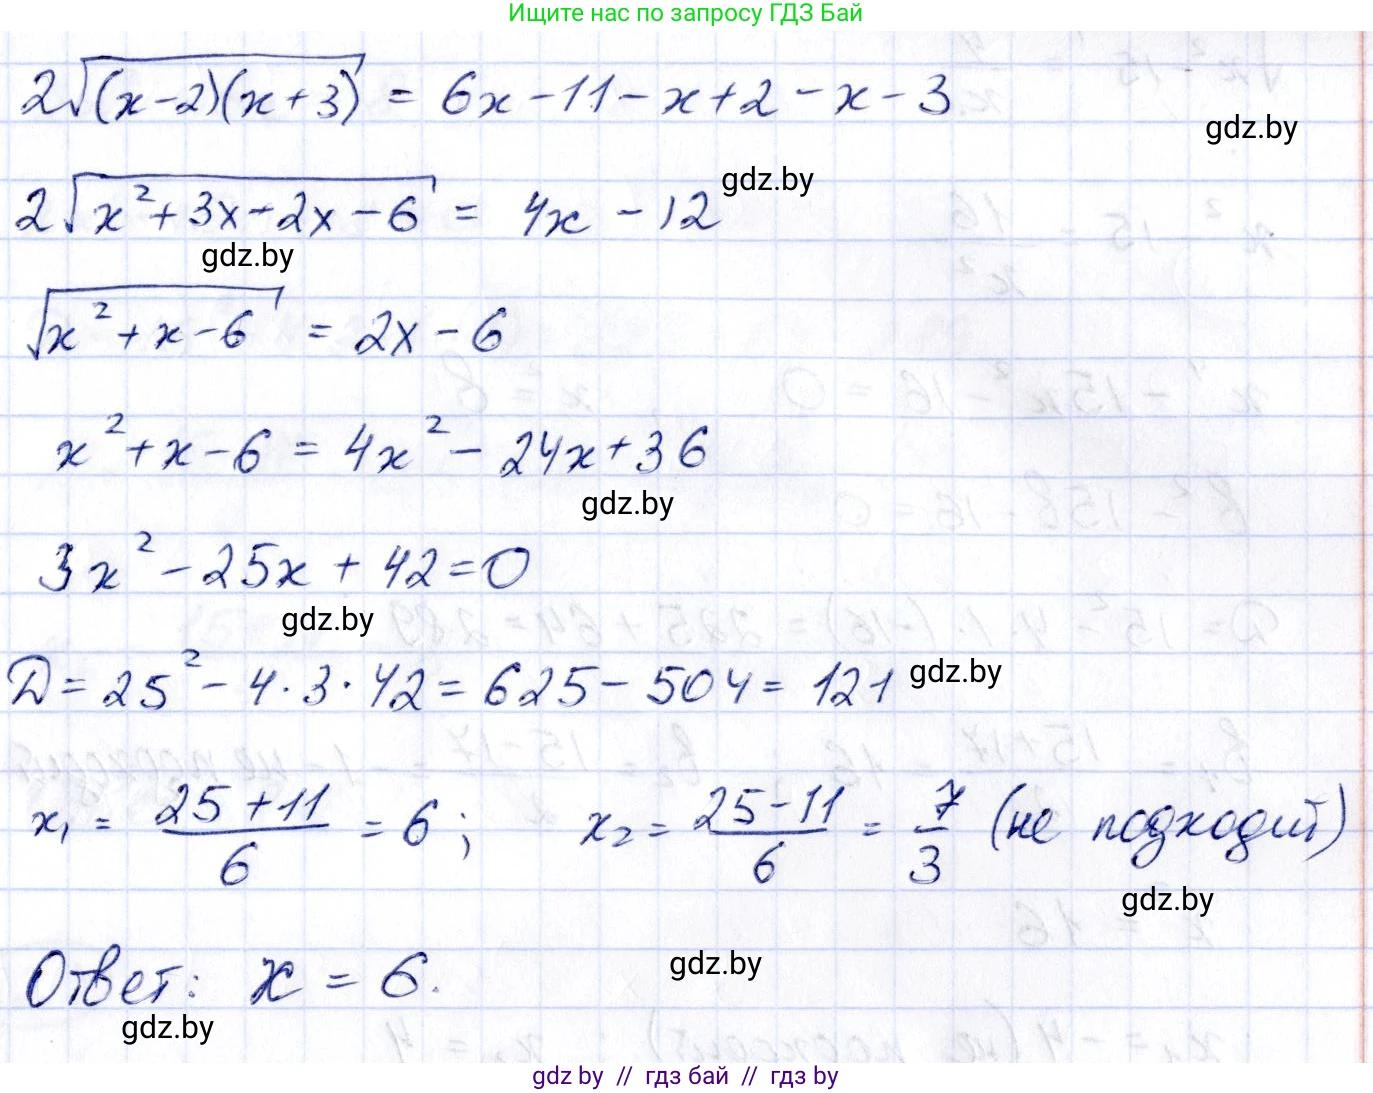 Ищите нас по запросу ГДЗ Бай
2√(x-2)(x+3) = 6x-11-x+2-x-3
gdz.by
gdz.by
2√x²+3x-2x-6 = 4x-12
gdz.by
√x²+x-6 = 2x-6
x²+x-6 = 4x²-24x+36
gdz.by
3x²-25x+42=0
gdz.by
Д=25²-4·3·42=625-504=121 gdz.by
x₁ = (25+11)/6 = 6; x₂ = (25-11)/6 = 7/3 (не подходит)
gdz.by
Ответ: x = 6.
gdz.by
gdz.by
gdz by // гдз бай // гдз by